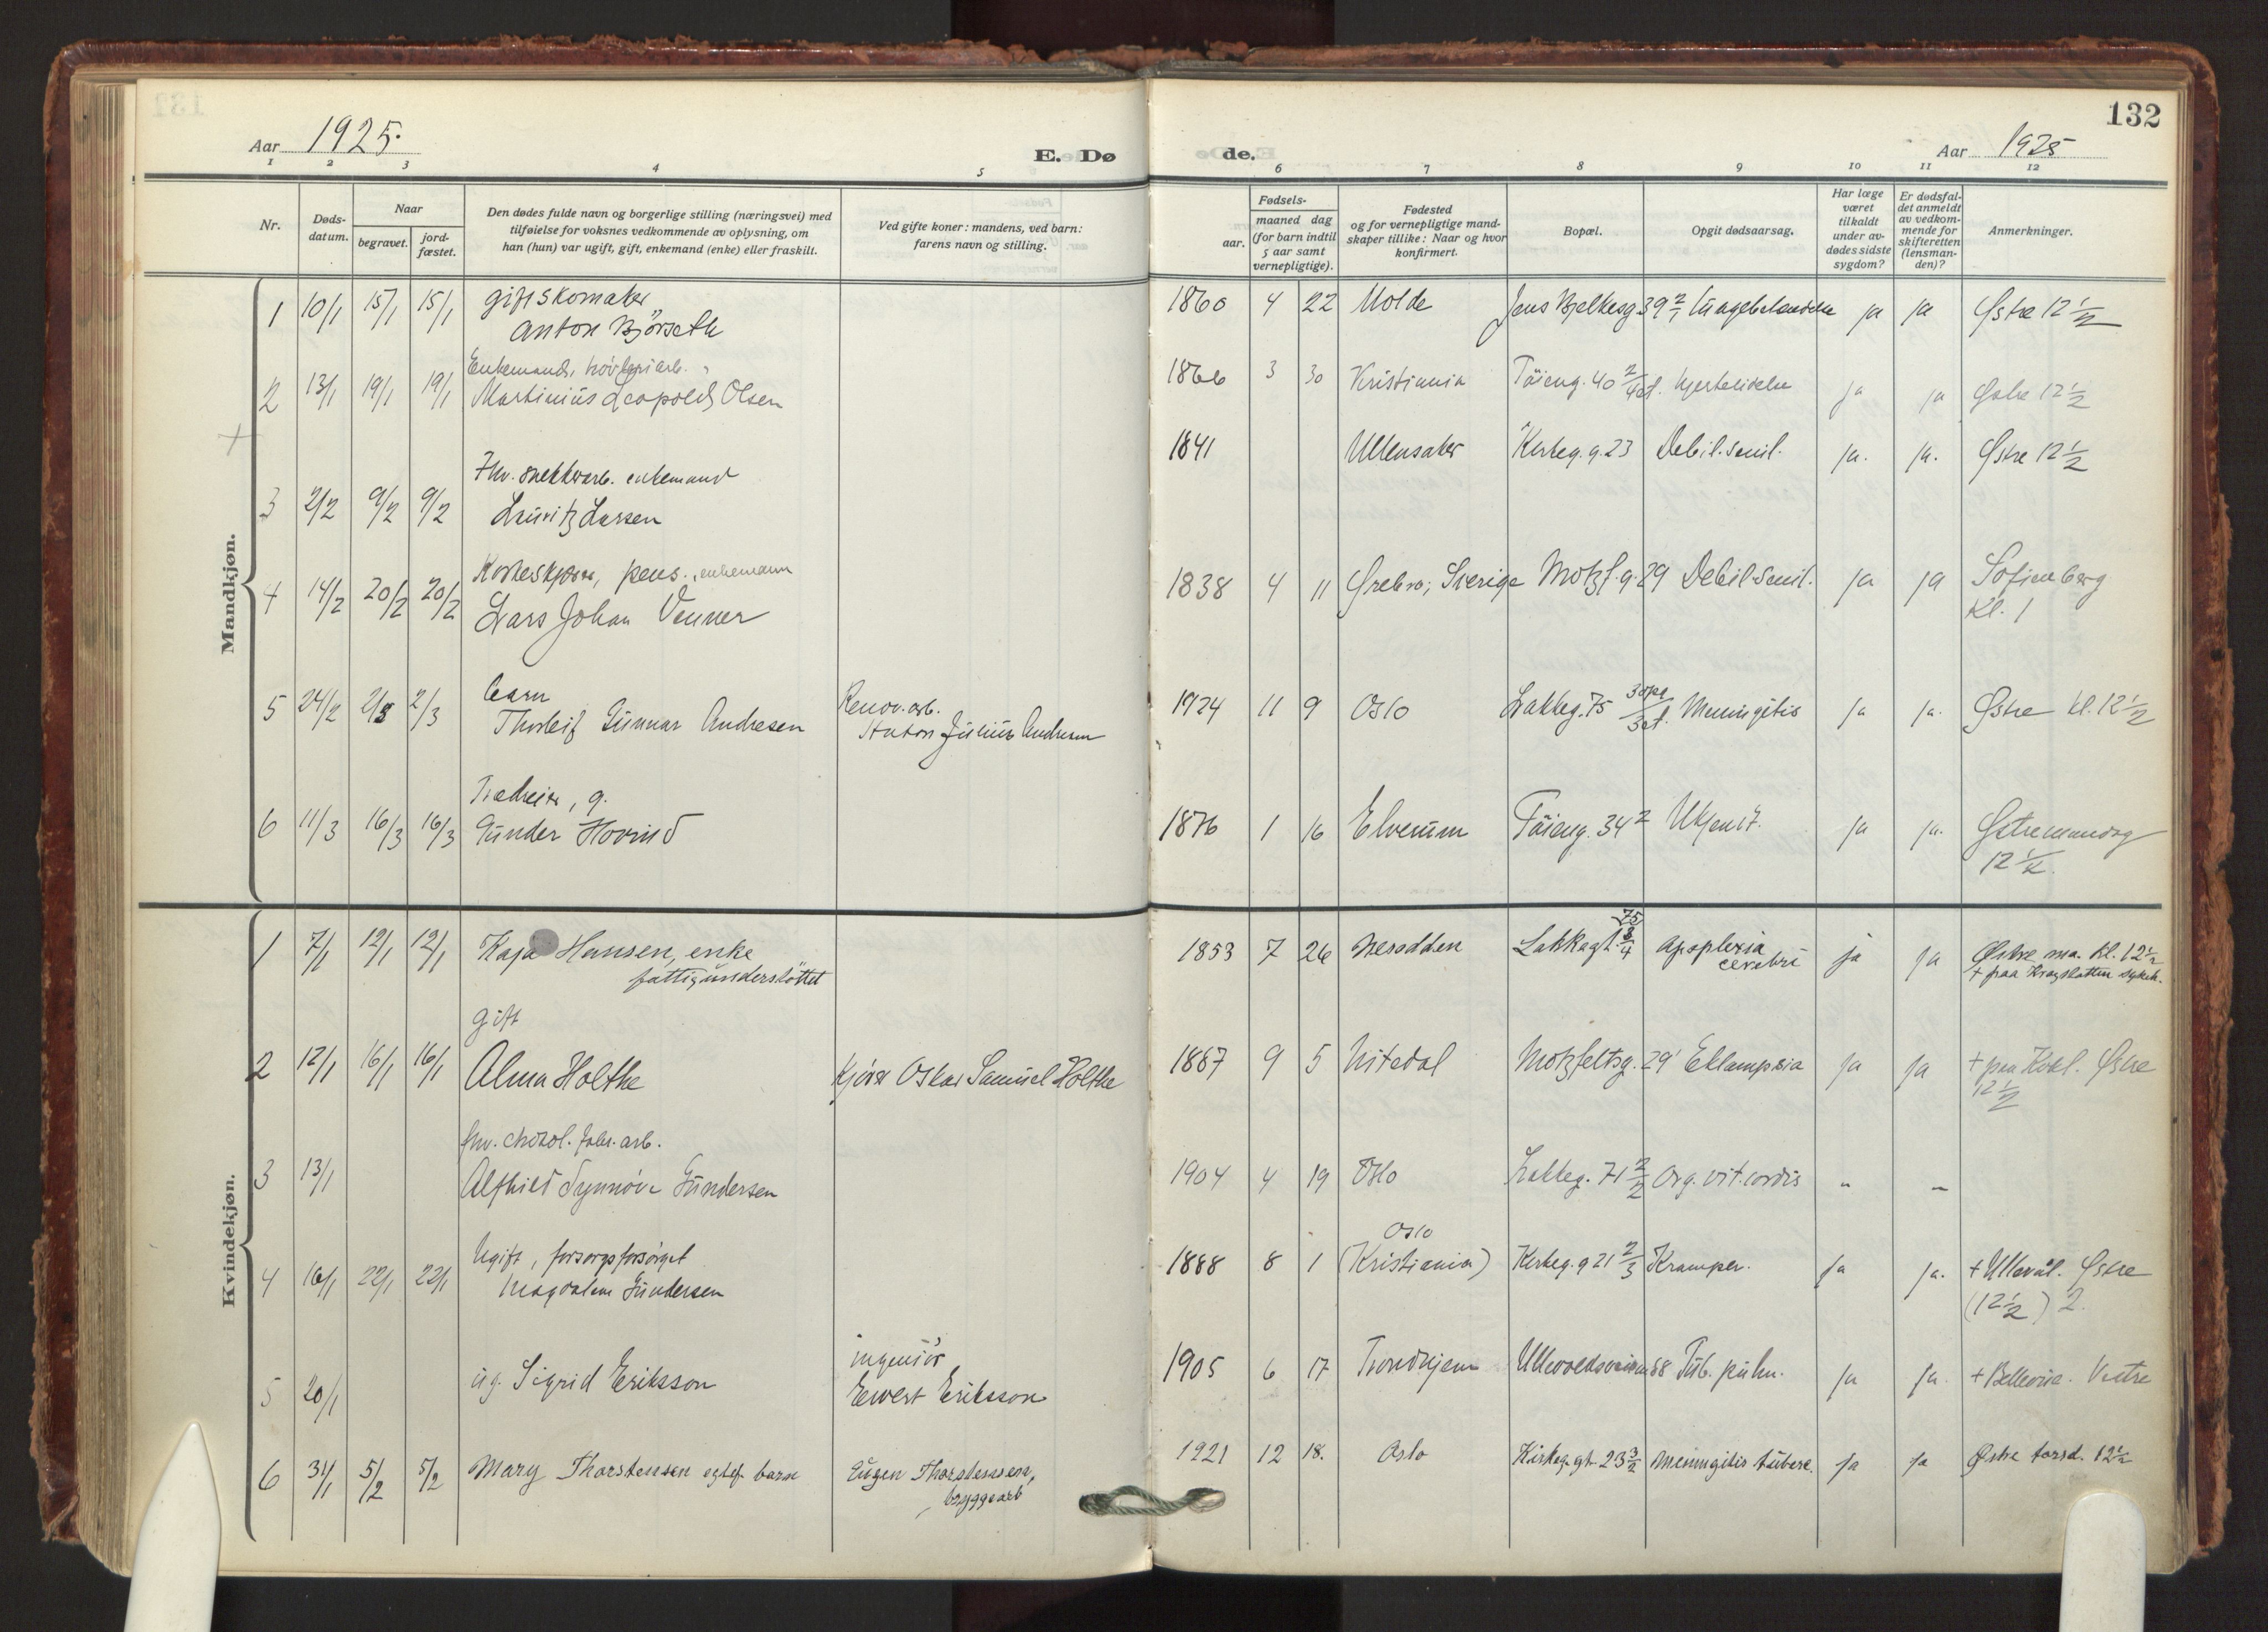 132
Aar 1925.
E. Dø
de.
Aar 1925
1 2 3 4 5 6 7 8 9 10 11 12
Nr.
Døds-
datum.
Naar
begravet.
jord-
fæstet.
Den dødes fulde navn og borgerlige stilling (næringsvei) med
tilføielse for voksnes vedkommende av oplysning, om
han (hun) var ugift, gift, enkemand (enke) eller fraskilt.
Ved gifte koner: mandens, ved barn:
farens navn og stilling.
Fødsels-
aar.
maaned dag
(for barn indtil
5 aar samt
vernepligtige).
Fødested
og for vernepligtige mand-
skaper tillike: Naar og hvor
konfirmert.
Bopæl.
Opgit dødsaarsag.
Har læge
været
tilkaldt
under av-
dødes sidste
sygdom?
Er dødsfal-
det anmeldt
av vedkom-
mende for
skifteretten
(lensman-
den)?
Anmerkninger.
Mandkjøn.
gift skomaker
1 10/1 15/1 15/1 Anton Bjørseth 1860 4 22 Molde Jens Bjelkesg. 39 2/1 ja ja Østre 12 1/2
Enkemand,
2 13/1 19/1 19/1 Martinius Leopold Olsen 1866 3 30 Kristiania Töieng. 40 2/4et. hjertelidelse ja ja Østre 12 1/2
Fhv. snekkerarb. enkemand
3 2/2 9/2 9/2 Lauritz Larsen 1841 Ullensaker Kirkeg.g. 23 Debil. senil. ja. ja. Østre 12 1/2
pens., enkemann
4 14/2 20/2 20/2 Lars Johan Venner 1838 4 11 Ørebro, Sverige Motzf.g. 29 Debil senil. ja ja Sofienberg
Kl. 1
barn Renov.arb.
5 24/2 2/3 2/3 Thorleif Gunnar Andresen Anton Julius Andresen 1924 11 9 Oslo Lakkeg. 75 3opg/3et. Meningitis ja ja. Østre kl. 12 1/2
6 11/3 16/3 16/3 Gunder Hovind 1876 1 16 Elverum Töieng. 34 2 Ukjent. ja ja.
12 1/2.
Kvindekjøn.
1 7/1 12/1 12/1 Kaja Hansen, enke 1853 7 26 Nesodden Lakkagt. 75 3/4 apoplexia
cerebri ja ja Østre ma. kl. 12 1/2
fattigunderstöttet + paa Krogstøtten sykeh.
gift
2 12/1 16/1 16/1 Alma Holthe Kjører Oskar Samuel Holthe 1887 9 5 Nitedal Motzfeltsg. 29 1 Eklampsia ja ja + paa Kvkl. Østre
12 1/2
fhv. chokol. fabr. arb.
3 13/1 Alfhild Synnøve Gundersen 1904 4 19 Oslo Lakkeg. 71 2/2 Org. vit. cordis - -
Ugift, forsorgsforsørget Oslo
4 16/1 22/1 22/1 Magdalene Gundersen 1888 8 1 (Kristiania) Kirkeg.g 21 2/3 Kramper. ja ja. + Ullevål. Østre
(12 1/2) 2.
ingeniör
5 20/1 ug. Sigrid Eriksson Ewert Eriksson 1905 6 17 Trondhjem Ullevoldsveien 68 Tub. pulm. ja ja. + Bellevue. Vestre
6 31/1 5/2 5/2 Mary Thorstensen egtef. barn Eugen Thorstensen,
bryggearb 1921 12 18. Oslo Kirkeg.gt. 23 3/2 meningitis tuberc. ja ja Østre torsd. 12 1/2